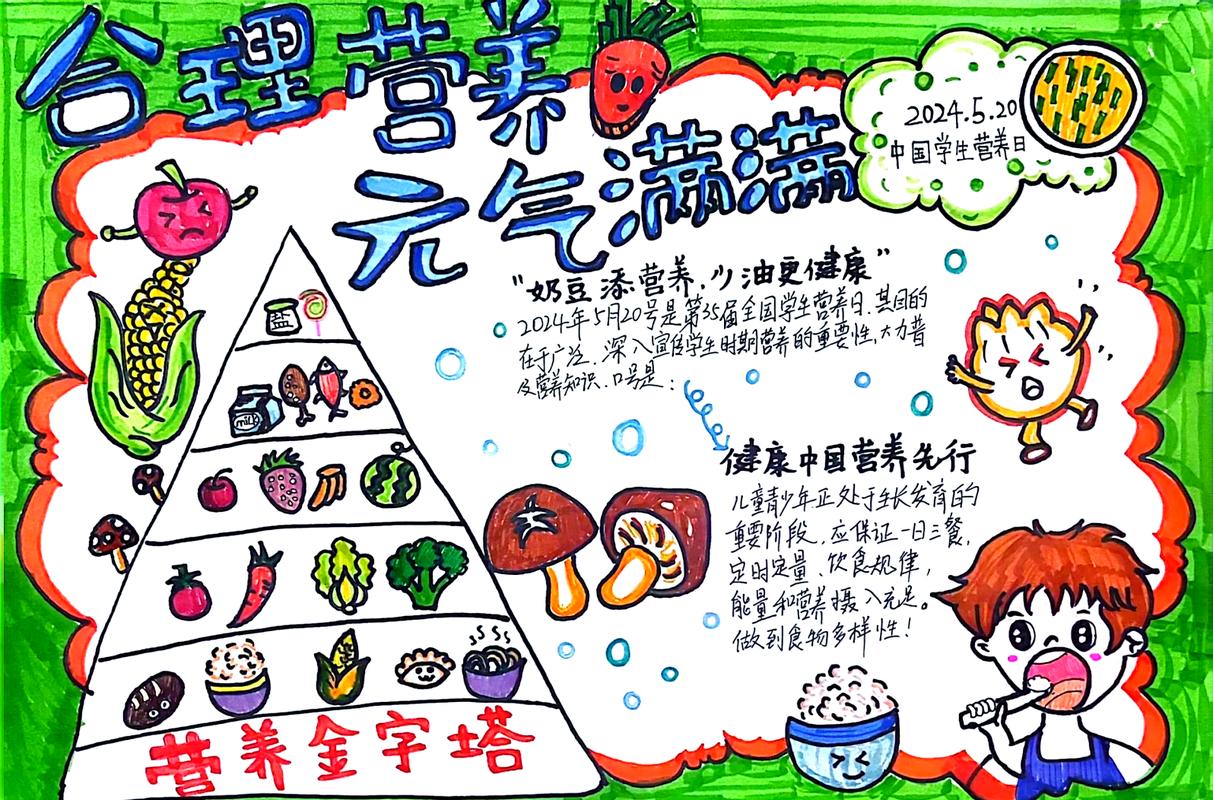 合理营养
元气满满
2024.5.20
中国学生营养日
"奶豆添营养,少油更健康"
2024年5月20号是第35届全国学生营养日,其目的
在于广泛、深入宣传学生时期营养的重要性,大力普
及营养知识.口号是:
健康中国营养先行
儿童青少年正处于生长发育的
重要阶段,应保证一日三餐,
定时定量、饮食规律,
能量和营养摄入充足。
做到食物多样性!
盐
milk
营养金字塔